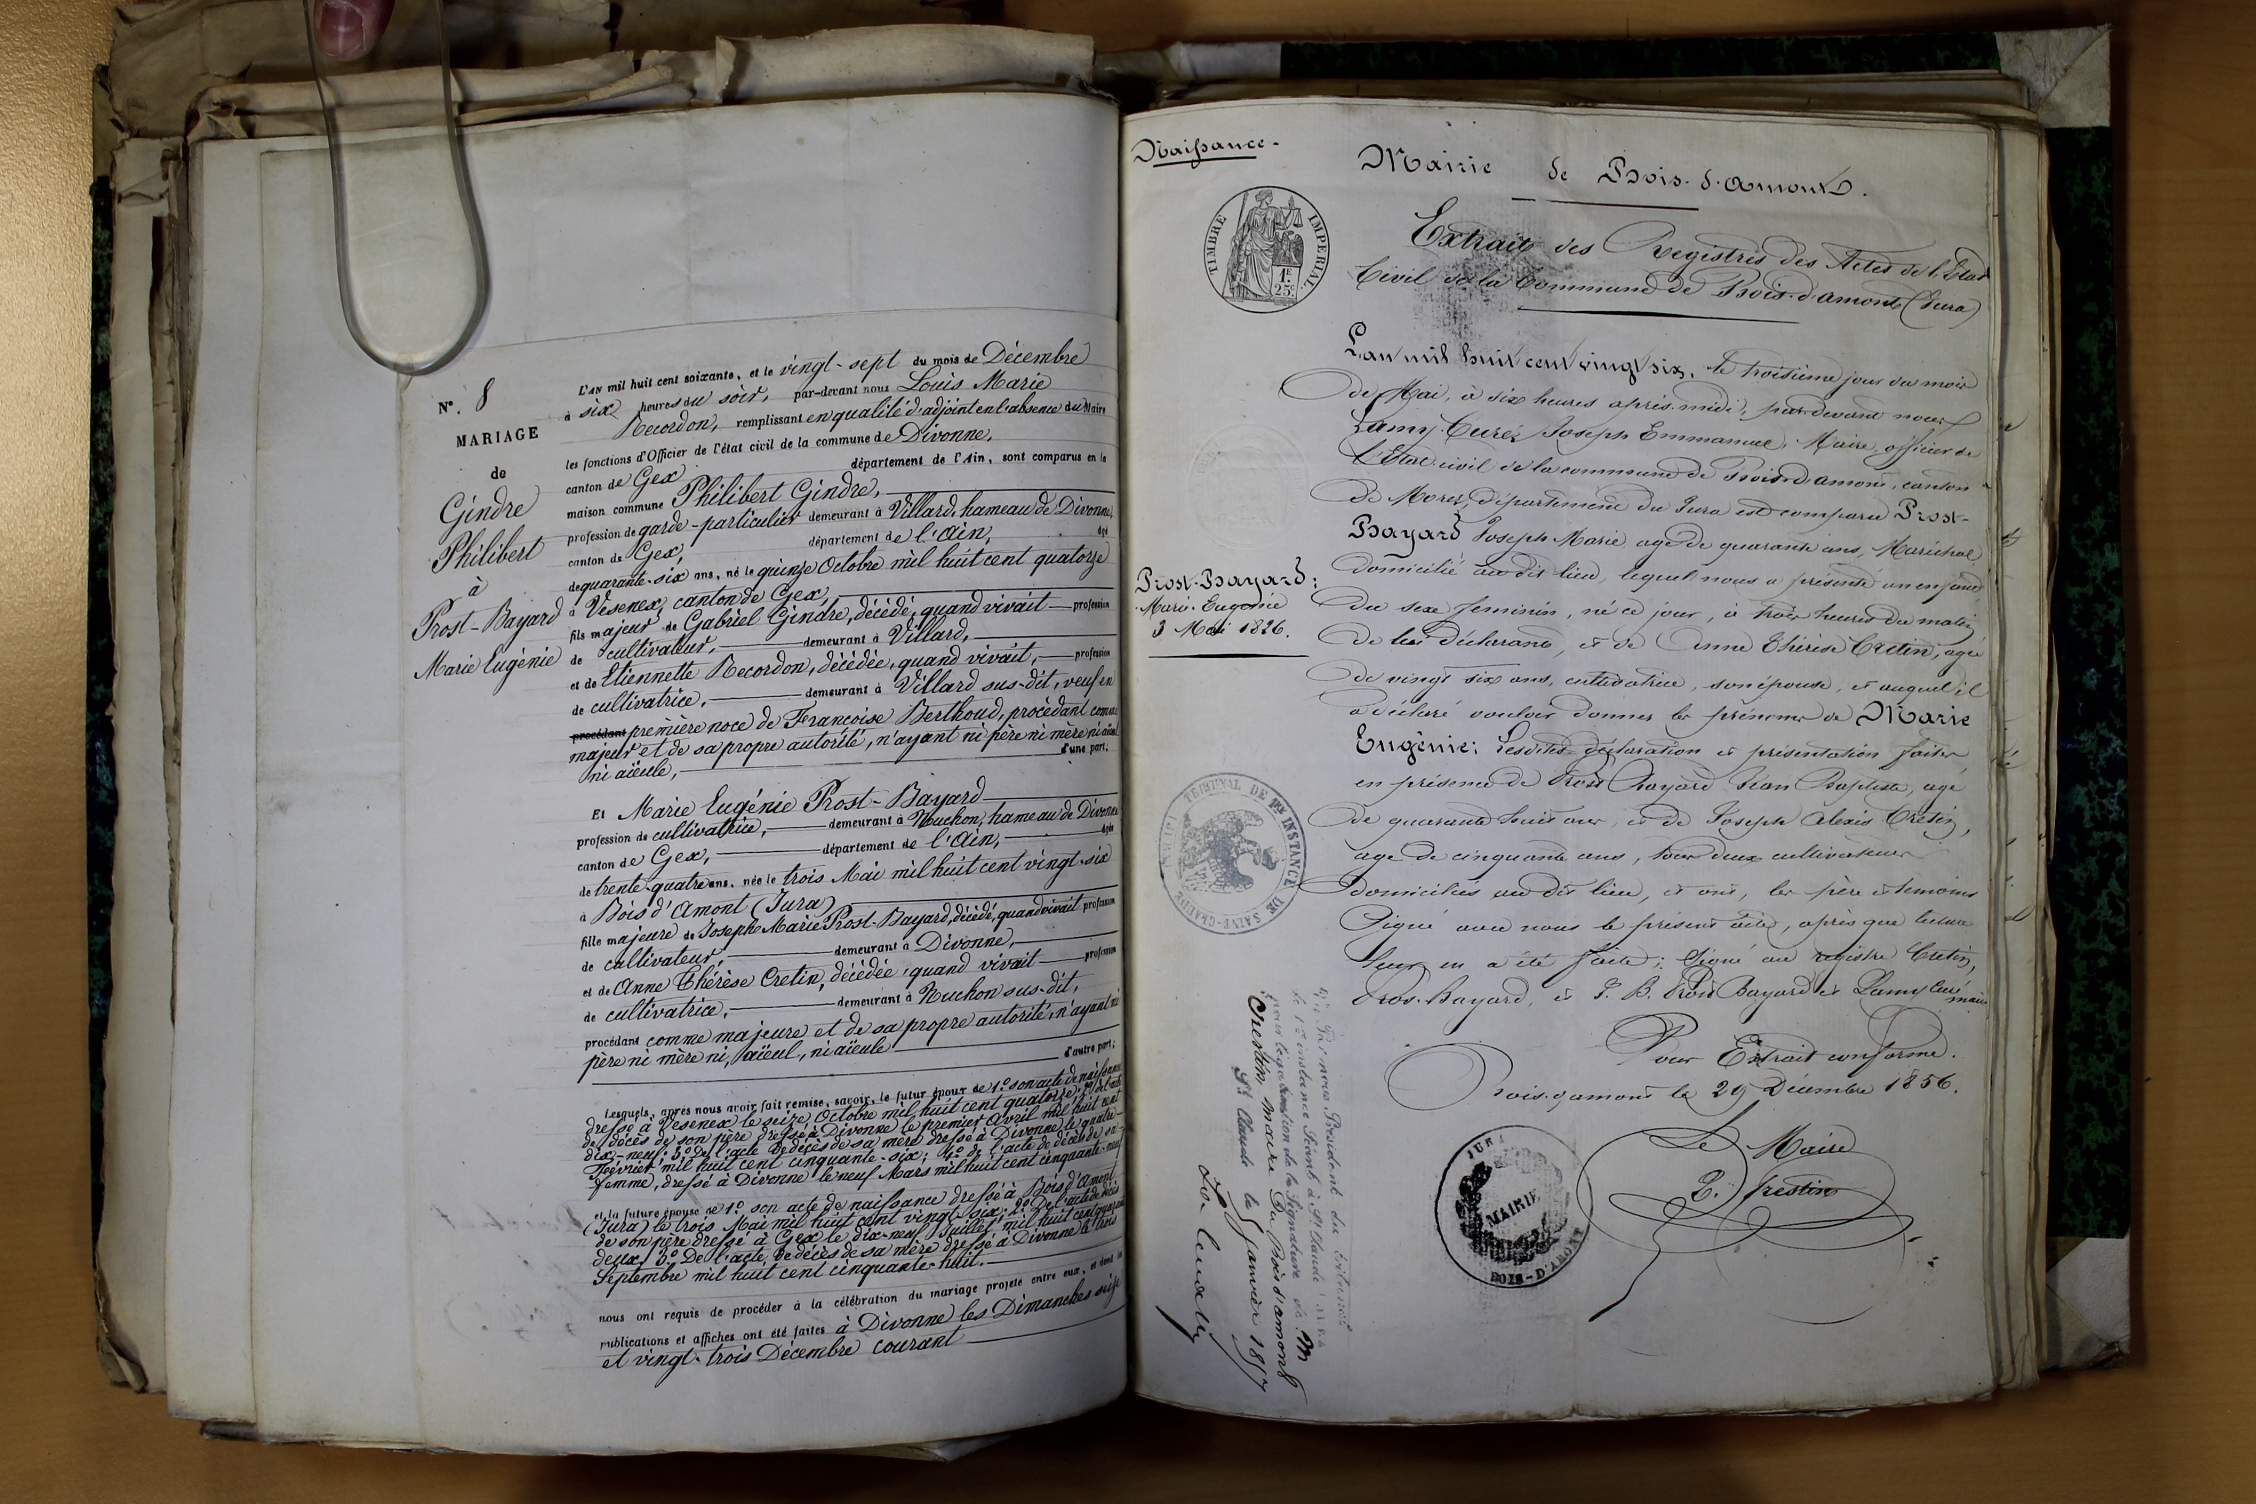 N°. 8
MARIAGE
de
Gindre
Philibert
à
Prost-Bayard
Marie Eugénie
L'AN mil huit cent soixante, et le vingt-sept du mois de Décembre
à six heures du soir, par-devant nous Louis Marie
Recordon, remplissant en qualité d'adjoint en l'absence du Maire
les fonctions d'Officier de l'état civil de la commune de Divonne,
canton de Gex département de l'Ain, sont comparus en la
maison commune Philibert Gindre,
profession de garde-particulier demeurant à Villard, hameau de Divonne,
canton de Gex, département de l'Ain, âgé
de quarante-six ans, né le quinze Octobre mil huit cent quatorze
à Vesenex, canton de Gex,
fils majeur de Gabriel Gindre, décédé, quand vivait profession
de cultivateur, demeurant à Villard,
et de Etiennette Recordon, décédée, quand vivait, profession
de cultivatrice, demeurant à Villard sus-dit, veuf en
procédant première noce de Francoise Berthoud, procédant comme
majeur et de sa propre autorité, n'ayant ni père ni mère ni aïeul
ni aïeule, d'une part;
Et Marie Eugénie Prost-Bayard
profession de cultivatrice, demeurant à Nuchon, hameau de Divonne
canton de Gex, département de l'Ain, âgée
de trente-quatre ans, née le trois Mai mil huit cent vingt-six
à Bois d'Amont (Jura)
fille majeure de Joseph Marie Prost-Bayard, décédé, quand vivait profession
de cultivateur, demeurant à Divonne,
et de Anne Thérèse Cretin, décédée, quand vivait profession
de cultivatrice, demeurant à Nuchon sus-dit,
procédant comme majeure et de sa propre autorité, n'ayant ni
père ni mère ni, aïeul, ni aïeule d'autre part;
Lesquels, après nous avoir fait remise, savoir, le futur époux de 1° son acte de naissance
dressé à Vesenex le seize Octobre mil huit cent quatorze; 2° de l'acte
de décès de son père dressé à Divonne le premier Avril mil huit cent
dix-neuf; 3° de l'acte de décès de sa mère dressé à Divonne le quatre
Février mil huit cent cinquante-six; 4° de l'acte de décès de sa
femme, dressé à Divonne le neuf Mars mil huit cent cinquante-neuf
et la future épouse de 1° son acte de naissance dressé à Bois d'Amont
(Jura) le trois Mai mil huit cent vingt-six; 2° De l'acte de décès
de son père dressé à Gex le dix-neuf Juillet mil huit cent quarante
deux; 3° De l'acte de décès de sa mère dressé à Divonne le trois
Septembre mil huit cent cinquante-huit.
nous ont requis de procéder à la célébration du mariage projeté entre eux, et dont les
publications et affiches ont été faites à Divonne les Dimanches seize
et vingt-trois Décembre courant
Naissance.
TIMBRE IMPERIAL
1F
25c
Prost-Bayard:
Marie-Eugénie
3 Mai 1826.
Mairie de Bois-d'amont.
Extrait des Registres des Actes de l'Etat
Civil de la Commune de Bois-d'amont (Jura)
L'an mil huit cent vingt six, le troisième jour du mois
de Mai, à six heures après-midi, par devant nous
Lamy-Curé Joseph Emmanuel, Maire, officier de
l'Etat civil de la commune de Bois-d'amont, canton
de Morez, département du Jura est comparu Prost-
Bayard Joseph Marie agé de quarante ans, Maréchal
domicilié au dit lieu, lequel nous a présenté un enfant
du sexe feminin, né ce jour, à trois heures du matin
de lui déclarant, et de Anne Thérèse Cretin, agée
de vingt six ans, cultivatrice, son épouse, et auquel il
a déclaré vouloir donner les prénoms de Marie
Eugènie; Lesdites déclaration et présentation faites
en présence de Prost Bayard Jean Baptiste, agé
de quarante huit ans, et de Joseph Alexis Cretin,
agé de cinquante ans, tous deux cultivateurs
domiciliés au dit lieu, et ont, les père et témoins
Signé avec nous le présent acte, après que lecture
leur en a été faite; Signé au registre Cretin,
Pros-Bayard, et J. B. Prost Bayard et Lamy Curé
maire
Pour Extrait conforme.
Bois-d'amont le 29 Décembre 1856.
Le Maire
TRIBUNAL DE 1ERE INSTANCE DE SAINT-CLAUDE
JURA
MAIRIE
BOIS-D'AMONT
Vu par nous Président du Tribunal
de 1re instance séant à St Claude Jura
pour légalisation de la Signature de M
Crestin maire du Bois d'amont
St Claude le 5 janvier 1857